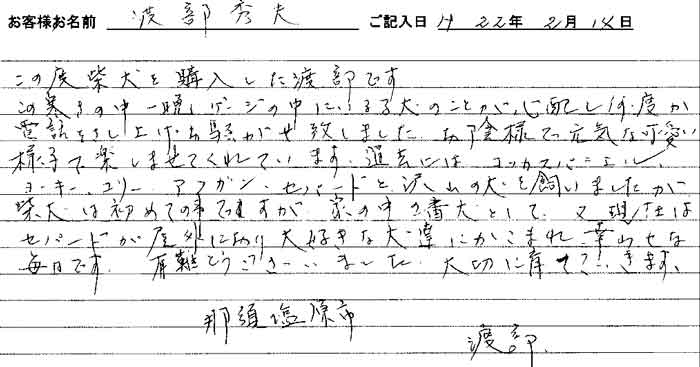 お客様お名前 渡部秀夫 ご記入日 H22年2月14日
この度柴犬を購入した渡部です
この寒さの中一晩中ゲージの中にいる子犬のことが心配し何度か
電話をさし上げお騒がせ致しました お陰様で元気な可愛い
様子で楽しませてくれています、過去にはコッカスパニエル、
ヨーキー、コリー アフガン、セパードと沢山の犬を飼いましたが
柴犬は初めての事ですが 家の中の番犬として、又現在は
セパードが屋外に居り大好きな犬達にかこまれ幸わせな
毎日です。 有難とうございました 大切に育てていきます、
那須塩原市
渡部.